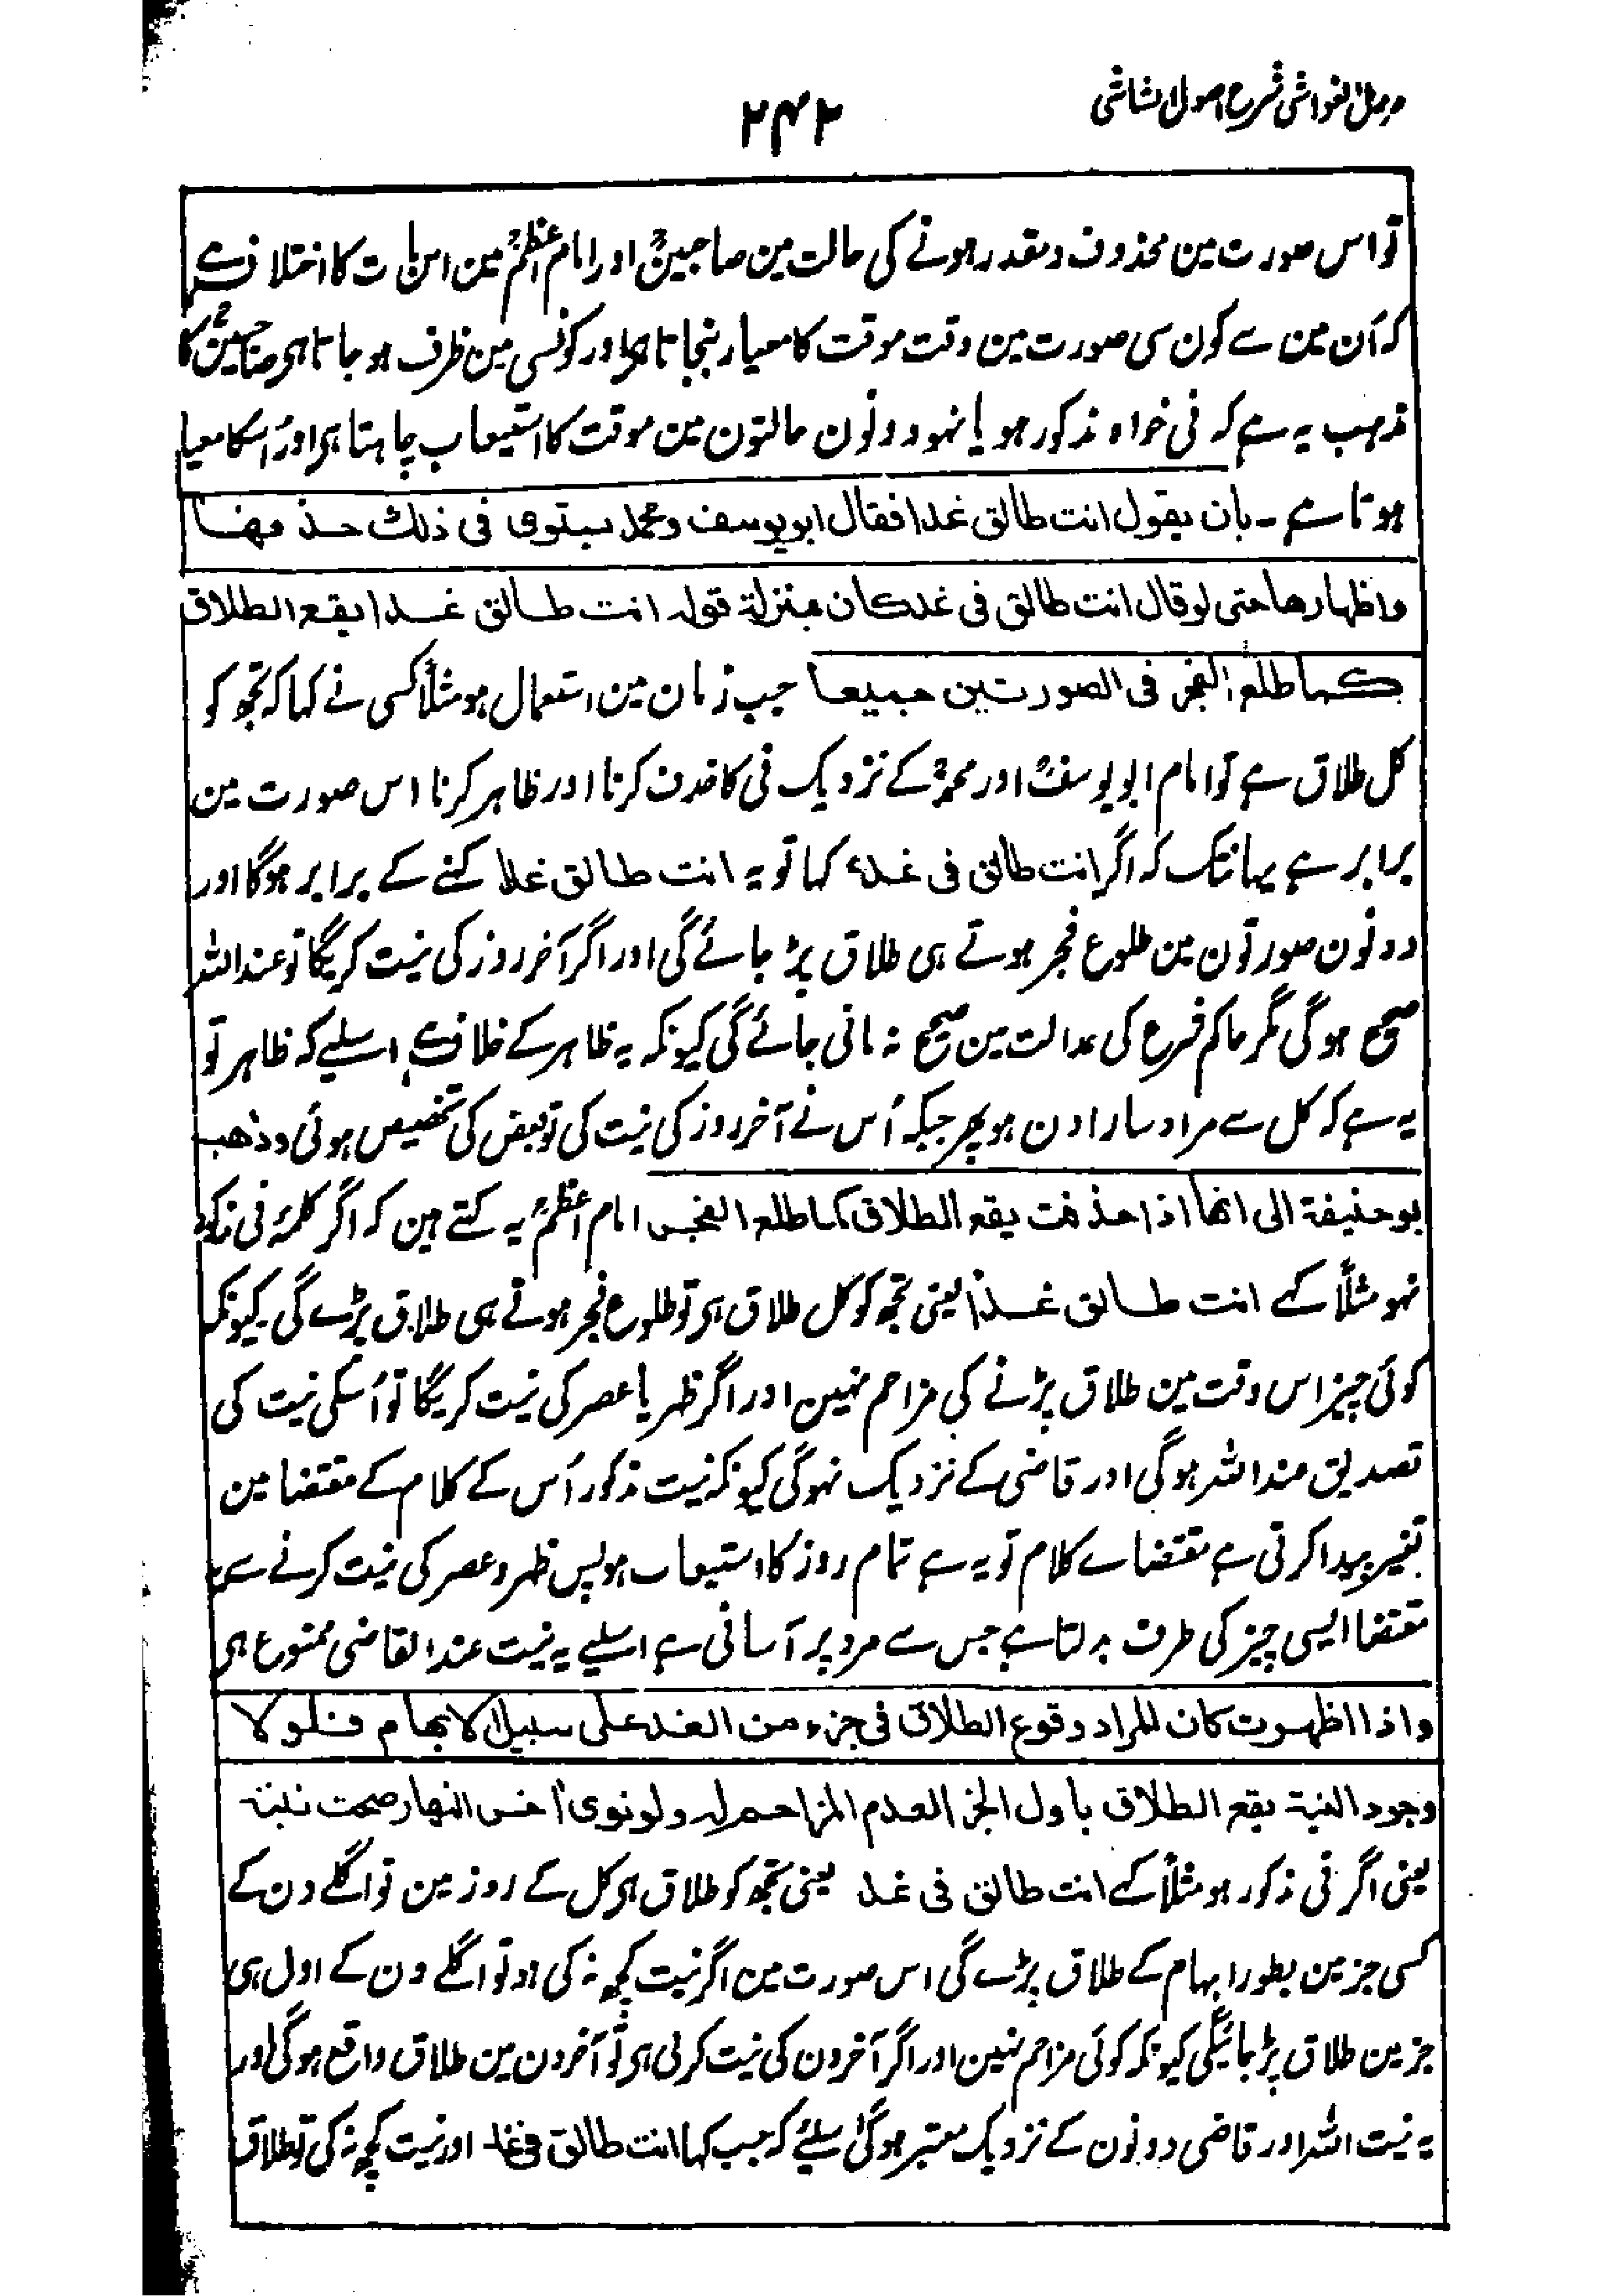 مزیل الغواشی شرح اصول الشاشی
۲۴۲
تو اس صورت مین محذوف و مقدر ہونے کی حالت مین صاحبینؒ اور امام اعظمؒ مین اس بات کا اختلاف ہے
کہ اُن مین سے کون سی صورت مین وقت موقت کا معیار بنجاتا ہی اور کونسی مین ظرف ہو جاتا ہی صاحبینؒ کا
مذہب یہ ہے کہ فی خواہ مذکور ہو یا نہو دونون حالتون مین موقت کا استیعاب چاہتا ہی اور اُسکا معیا
ہوتا ہے ۔ بان یقول انت طالق غدا فقال ابو یوسف و محمد یستوی فی ذلك حذفها
واظهارها حتی لو قال انت طالق فی غد کان بمنزلة قوله انت طالق غدا یقع الطلاق
کما طلع الفجر فی الصورتین جمیعا جب زمان مین استعمال ہو مثلاً کسی نے کہا کہ تجھ کو
کل طلاق ہے تو امام ابو یوسفؒ اور محمدؒ کے نزدیک فی کا حذف کرنا اور ظاہر کرنا اس صورت مین
برابر ہے یہانتک کہ اگر انت طالق فی غد کہا تو یہ انت طالق غدا کہنے کے برابر ہوگا اور
دونون صورتون مین طلوع فجر ہوتے ہی طلاق پڑ جائے گی اور اگر آخر روز کی نیت کریگا تو عند اللہ
صحیح ہو گی مگر حاکم شرع کی عدالت مین صحیح نہ مانی جائے گی کیونکہ یہ ظاہر کے خلاف ہے اسلیے کہ ظاہر تو
یہ ہے کہ کل سے مراد سارا دن ہو پھر جبکہ اُس نے آخر روز کی نیت کی تو بعض کی تخصیص ہوئی وذهب
بو حنیفة الی انها اذا حذفت یقع الطلاق کما طلع الفجر امام اعظمؒ یہ کہتے ہین کہ اگر کلمۂ فی مذکور
نہو مثلاً کہے انت طالق غدا یعنی تجھ کو کل طلاق ہی تو طلوع فجر ہوتے ہی طلاق پڑے گی کیونکہ
کوئی چیز اس وقت مین طلاق پڑنے کی مزاحم نہین اور اگر ظہر یا عصر کی نیت کریگا تو اُسکی نیت کی
تصدیق عند اللہ ہوگی اور قاضی کے نزدیک نہوگی کیونکہ نیت مذکور اُس کے کلام کے مقتضا مین
تغیر پیدا کرتی ہے مقتضاے کلام تو یہ ہے تمام روز کا استیعاب ہو پس ظہر و عصر کی نیت کرنے سے یہ
مقتضا ایسی چیز کی طرف بدلتا ہے جس سے مرد پر آسانی ہے اسلیے یہ نیت عند القاضی ممنوع ہی
واذا اظهرت کان المراد وقوع الطلاق فی جزء من الغد علی سبیل الابهام فلو لا
وجود النیة یقع الطلاق باول الجزء لعدم المزاحم له ولو نوی آخر النهار صحت نیته
یعنی اگر فی مذکور ہو مثلاً کہے انت طالق فی غد یعنی تجھ کو طلاق ہی کل کے روز مین تو اگلے دن کے
کسی جز مین بطور ابہام کے طلاق پڑے گی اس صورت مین اگر نیت کچھ نہ کی ہو تو اگلے دن کے اول ہی
جز مین طلاق پڑ جائیگی کیونکہ کوئی مزاحم نہین اور اگر آخر دن کی نیت کر لی ہی تو آخر دن مین طلاق واقع ہوگی اور
یہ نیت اللہ اور قاضی دونون کے نزدیک معتبر ہوگی اسلیے کہ جب کہا انت طالق فی غد اور نیت کچھ نہ کی تو طلاق